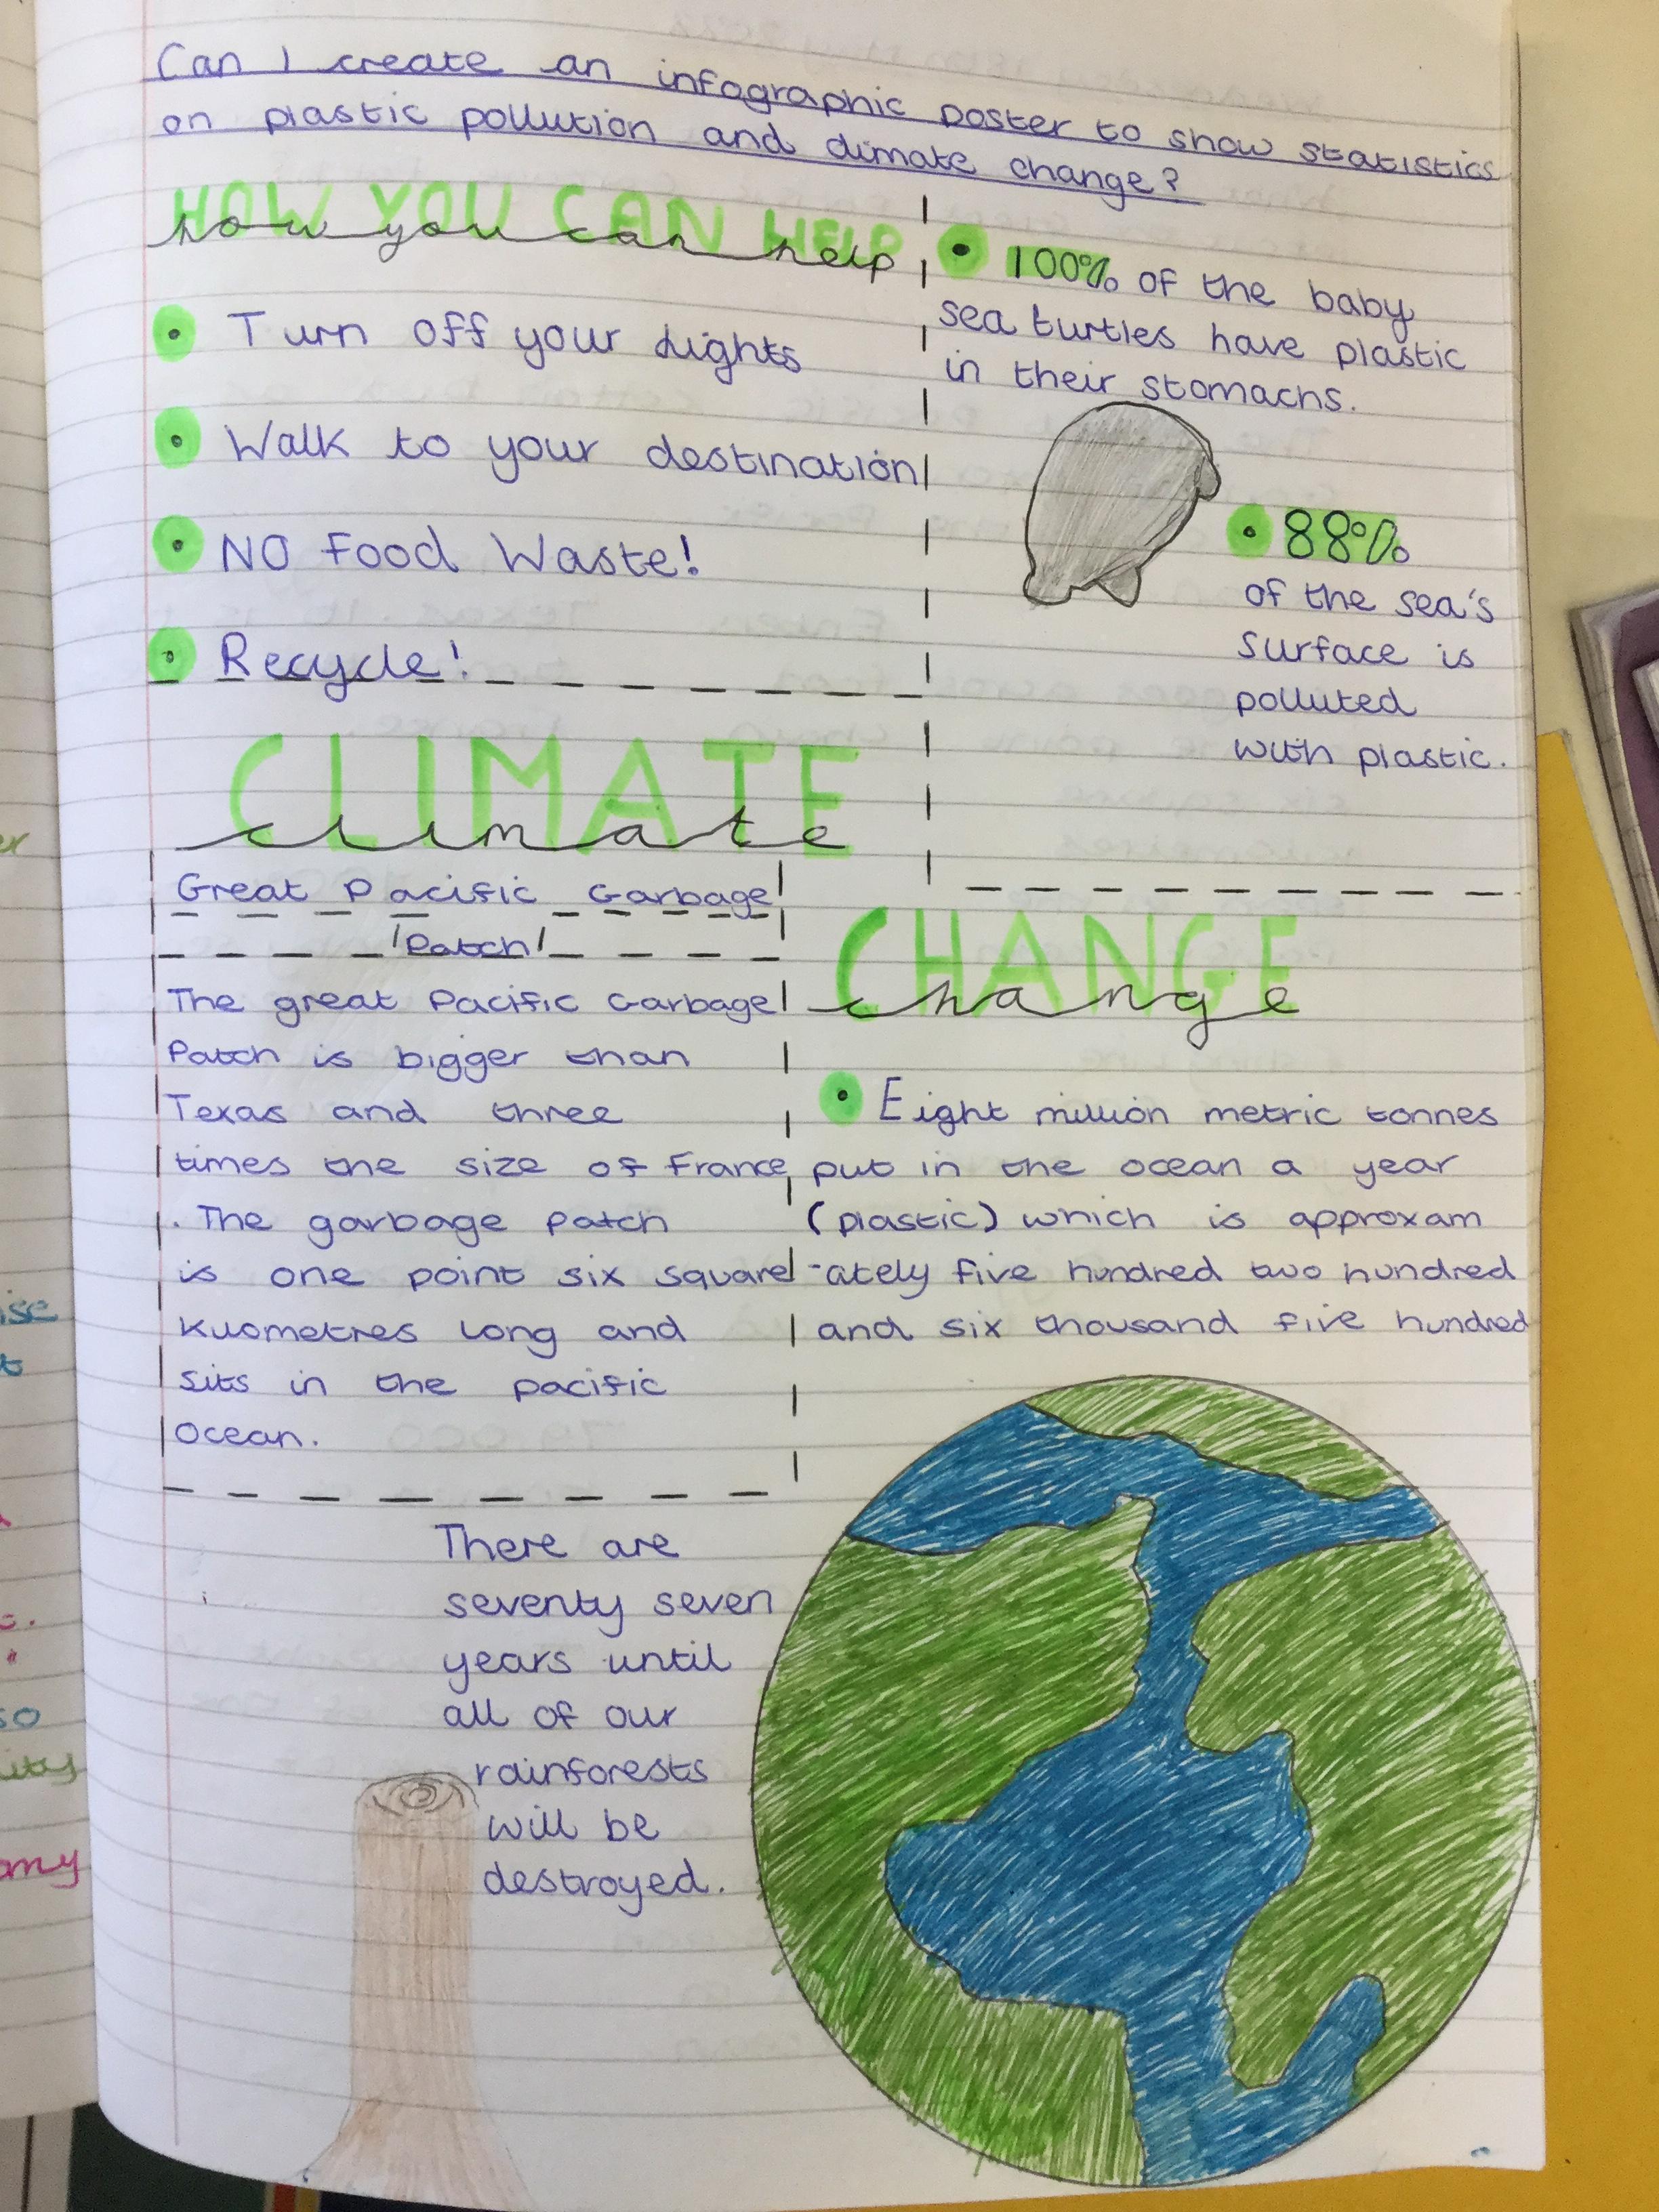 Can I create an infographic poster to show statistics
on plastic pollution and climate change?
HOW YOU CAN HELP
how you can help
• Turn off your lights
• Walk to your destination
• NO Food Waste!
• Recycle!
• 100% of the baby
sea turtles have plastic
in their stomachs.
• 88%
of the sea's
surface is
polluted
with plastic.
CLIMATE
climate
Great Pacific Garbage
Patch
The great Pacific Garbage
Patch is bigger than
Texas and three
times the size of France
. The garbage patch
is one point six square
Kilometres long and
sits in the pacific
Ocean.
CHANGE
change
• Eight million metric tonnes
put in the ocean a year
(plastic) which is approxam
-ately five hundred two hundred
and six thousand five hundred
There are
seventy seven
years until
all of our
rainforests
will be
destroyed.
ise
so
ity
my